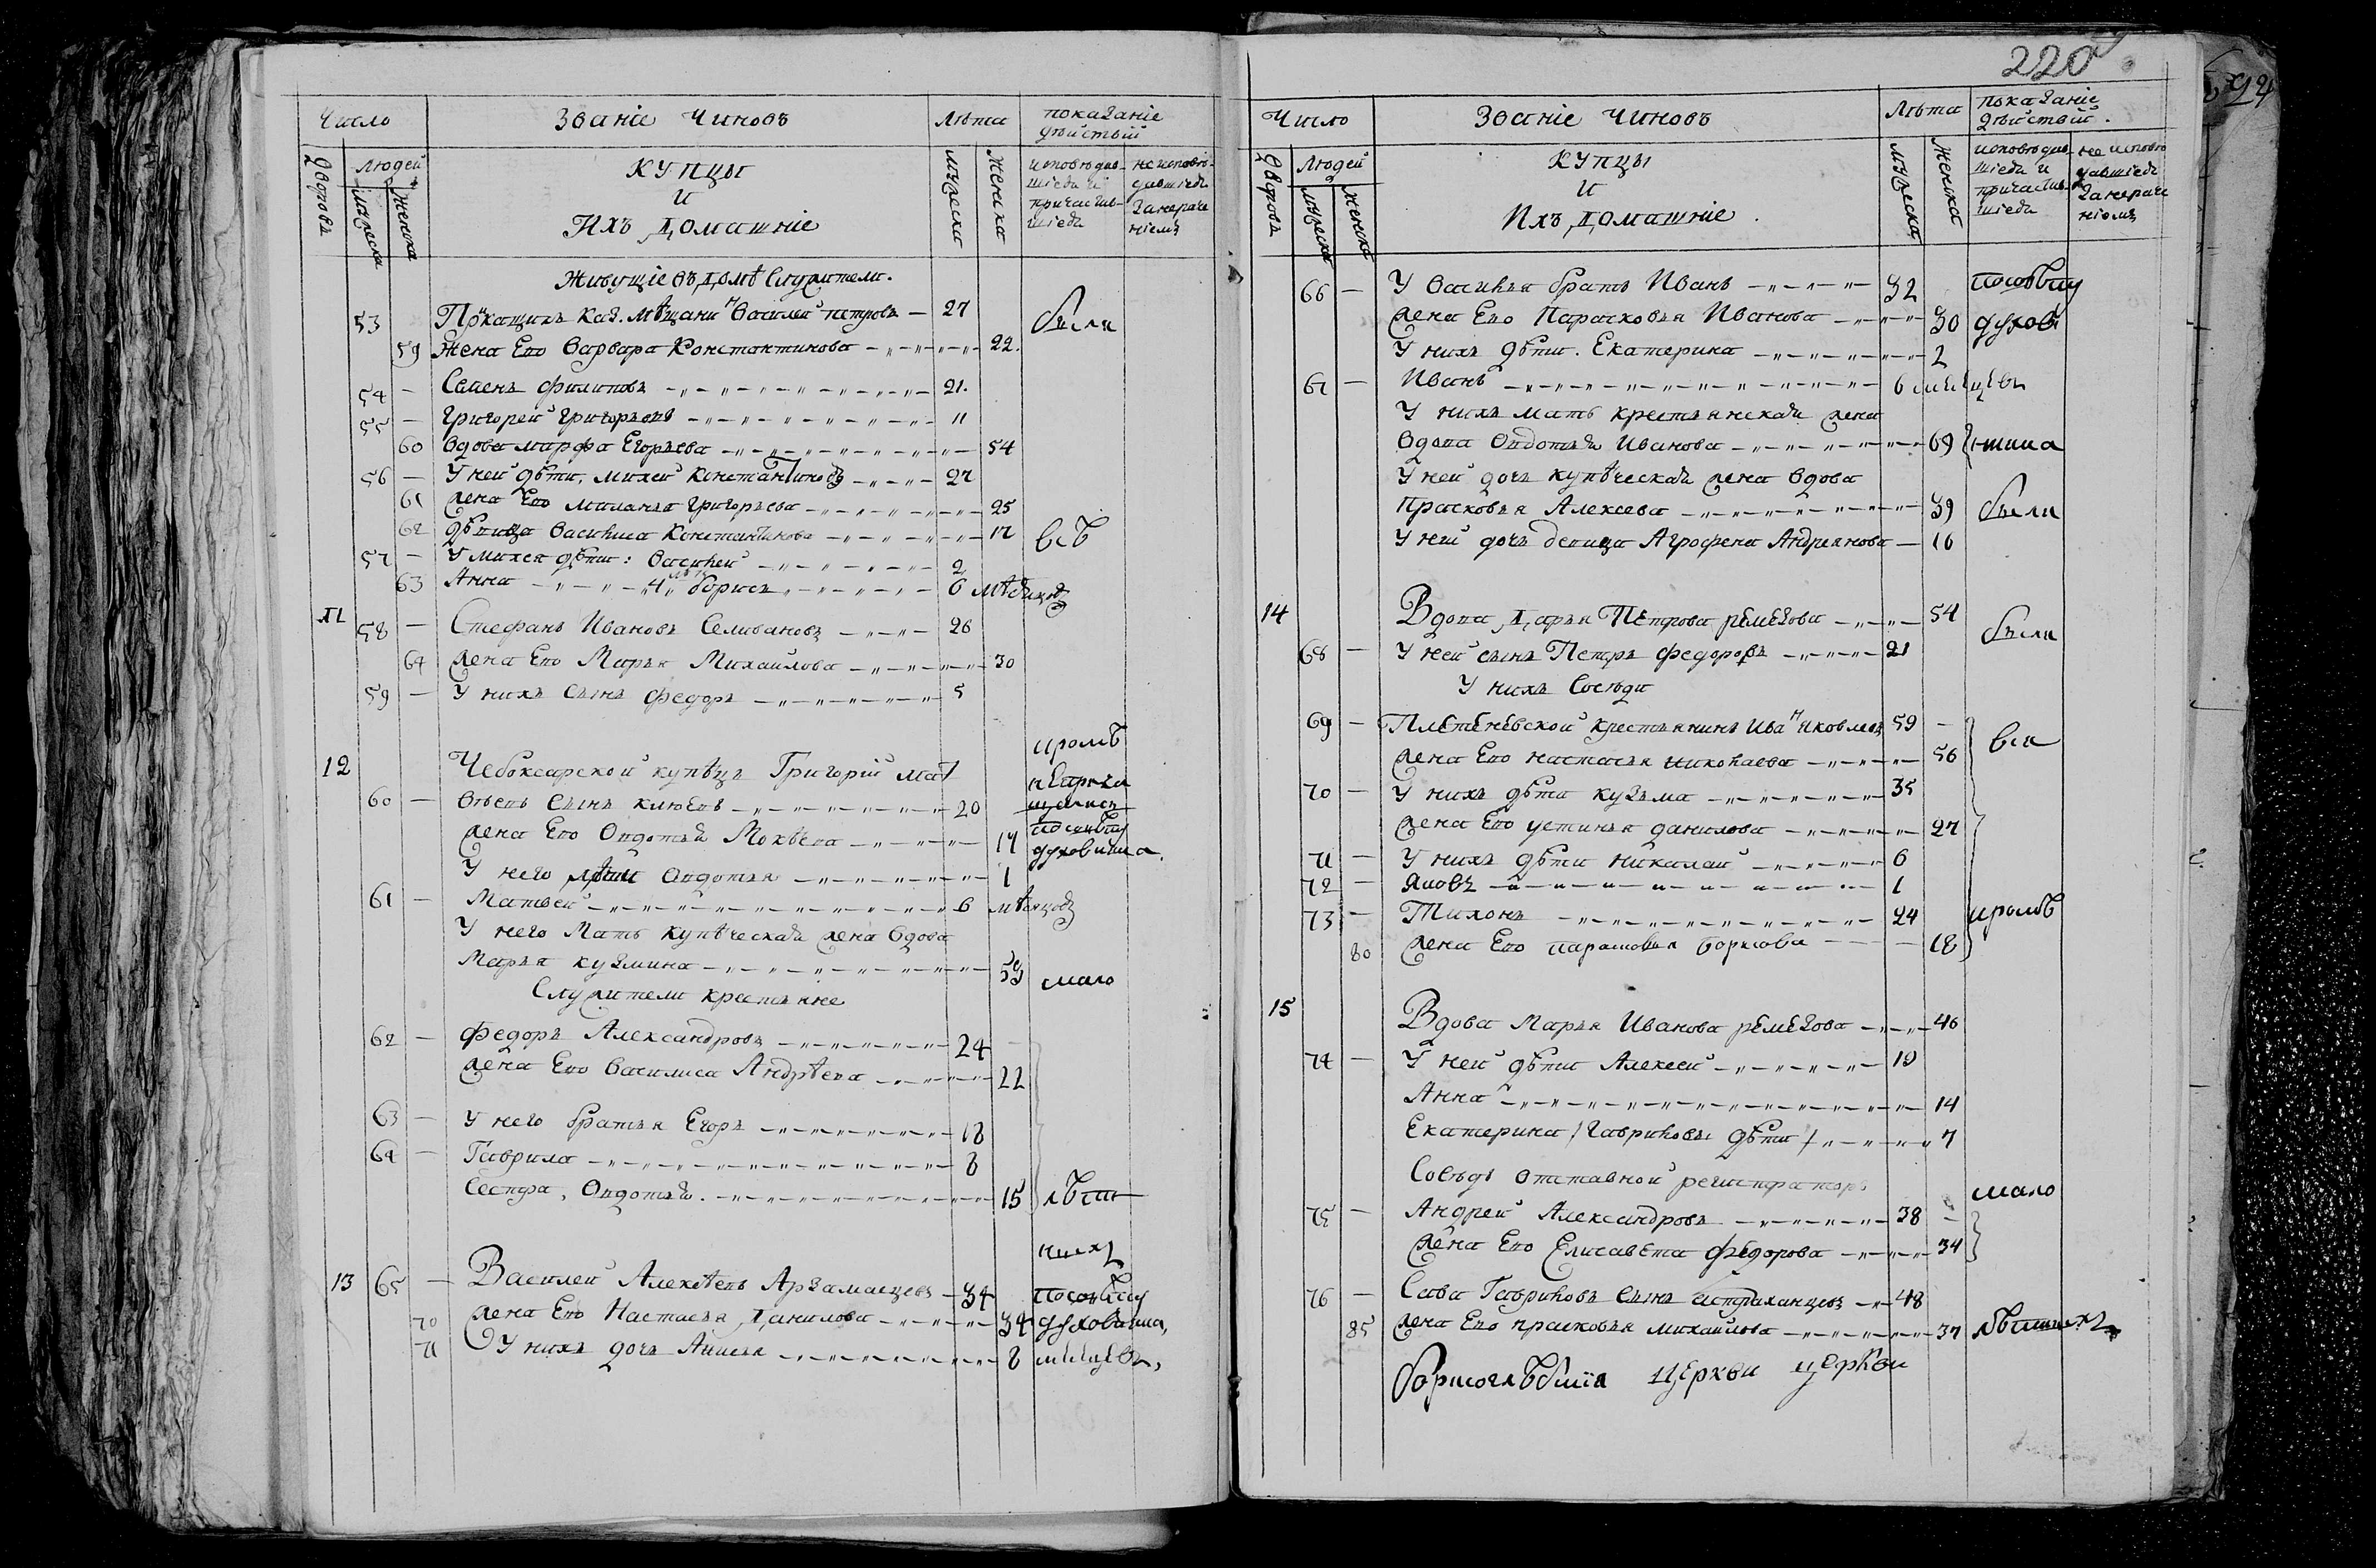 Число Званіе Чиновъ Лѣта показаніе дѣйствій
Дворовъ людей мужеска женска
купцы
и
Ихъ Домашніе
мужеска женска
исповѣдавшіеся и причастившіеся
не исповѣдавшіеся за нераченіемъ
Живущіе въ домѣ Служители.
53 Прикащикъ Каз. мѣщанинъ Василей петровъ 27 были
59 Жена Его Варвара Константинова 22.
54 — Семенъ филиповъ 21.
55 — Григорей Григорьевъ 11
60 вдова марфа Егорьева 54
56 — У ней дѣти, михей Константиновъ 27
61 жена Его миланья григорьева 25
62 дѣвица Василиса Константинова 17 всѣ
57 — У михея дѣти: Василей 2
63 Анна 4, борисъ 6 мѣсяцовъ
11 58 — Стефанъ Ивановъ Селивановъ 26
64 жена Его Марья Михаилова 30
59 — У нихъ сынъ федоръ 5
кромѣ
12 Чебоксарской купецъ Григорій мат
60 — вѣевъ сынъ 20
жена Его Овдотья 17 духовника.
У него дѣти Овдотья 1
61 — Матвей 6 мѣсяцовъ
У него Мать купѣческая жена вдова
Марья кузмина 59 мало
Служители крестьяне
62 — федоръ Александровъ 24
жена Его Василиса Андрѣева 22
63 — У него братья Егоръ 18
64 — Гаврила 8
Сестра, Овдотья. 15 лѣт
нихъ
13 65 — Василей Алексѣевъ Арзамасцевъ 34 посовѣту
70 жена Его Настасья Данилова 34 духовника,
71 У нихъ дочь Анисья 8 месяцевъ,
220
Число Званіе Чиновъ Лѣта показаніе дѣйствій.
Дворовъ людей мужеска женска
купцы
и
Ихъ Домашніе.
мужеска женска
исповѣдавшіеся и причастившіеся
не исповѣдавшіеся за нераченіемъ
66 — У Василья братъ Иванъ 32 посовѣту
жена Его Парасковья Иванова 30 духов
У нихъ дѣти. Екатерина 2
67 — Иванъ 6 месяцевъ
У нихъ мать крестьянская жена
вдова Овдотья Иванова 69 ника
У ней дочь купѣческая жена вдова
Прасковья Алексева 39 были
У ней дочь девица Агрофена Андреянова 16
14 Вдова Дарья Петрова ремезова 54 были
68 — У ней сынъ Петръ федоровъ 21
У нихъ Соседи
69 — Плетеневской крестьянинъ Иванъ яковлевъ 59
жена Его настасья николаева 56 вся
70 — У нихъ дѣти кузьма 35
жена Его устинья данилова 27
71 — У нихъ дѣти николай 6
72 — Яковъ 1
73 — Тихонъ 24 кромѣ
80 жена Его парасковья борисова 18
15 Вдова Марья Иванова ремезова 46
74 — У ней дѣти Алексей 19
Анна 14
Екатерина /Гавриловы дѣти/ 7
Соседъ отставной регистраторъ
мало
75 — Андрей Александровъ 38
жена Его Елисавета федорова 34
76 — Сава Гавриловъ сынъ астраханцевъ 48
85 жена Его прасковья михаилова 37 лѣтнихъ
борисоглѣбския церкви церкви